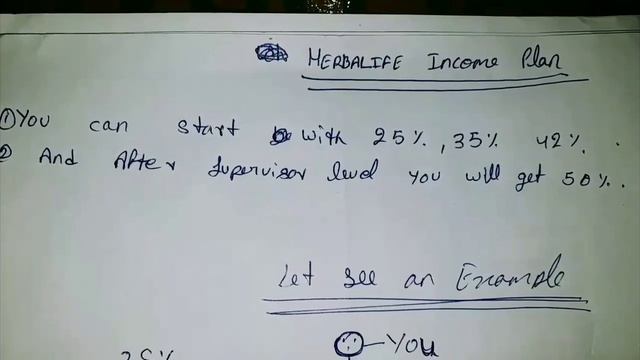 HERBALIFE Income Plan
① You can start with 25%, 35% 42%.
② And After Supervisor level you will get 50%.
Let see an Example
You
25%